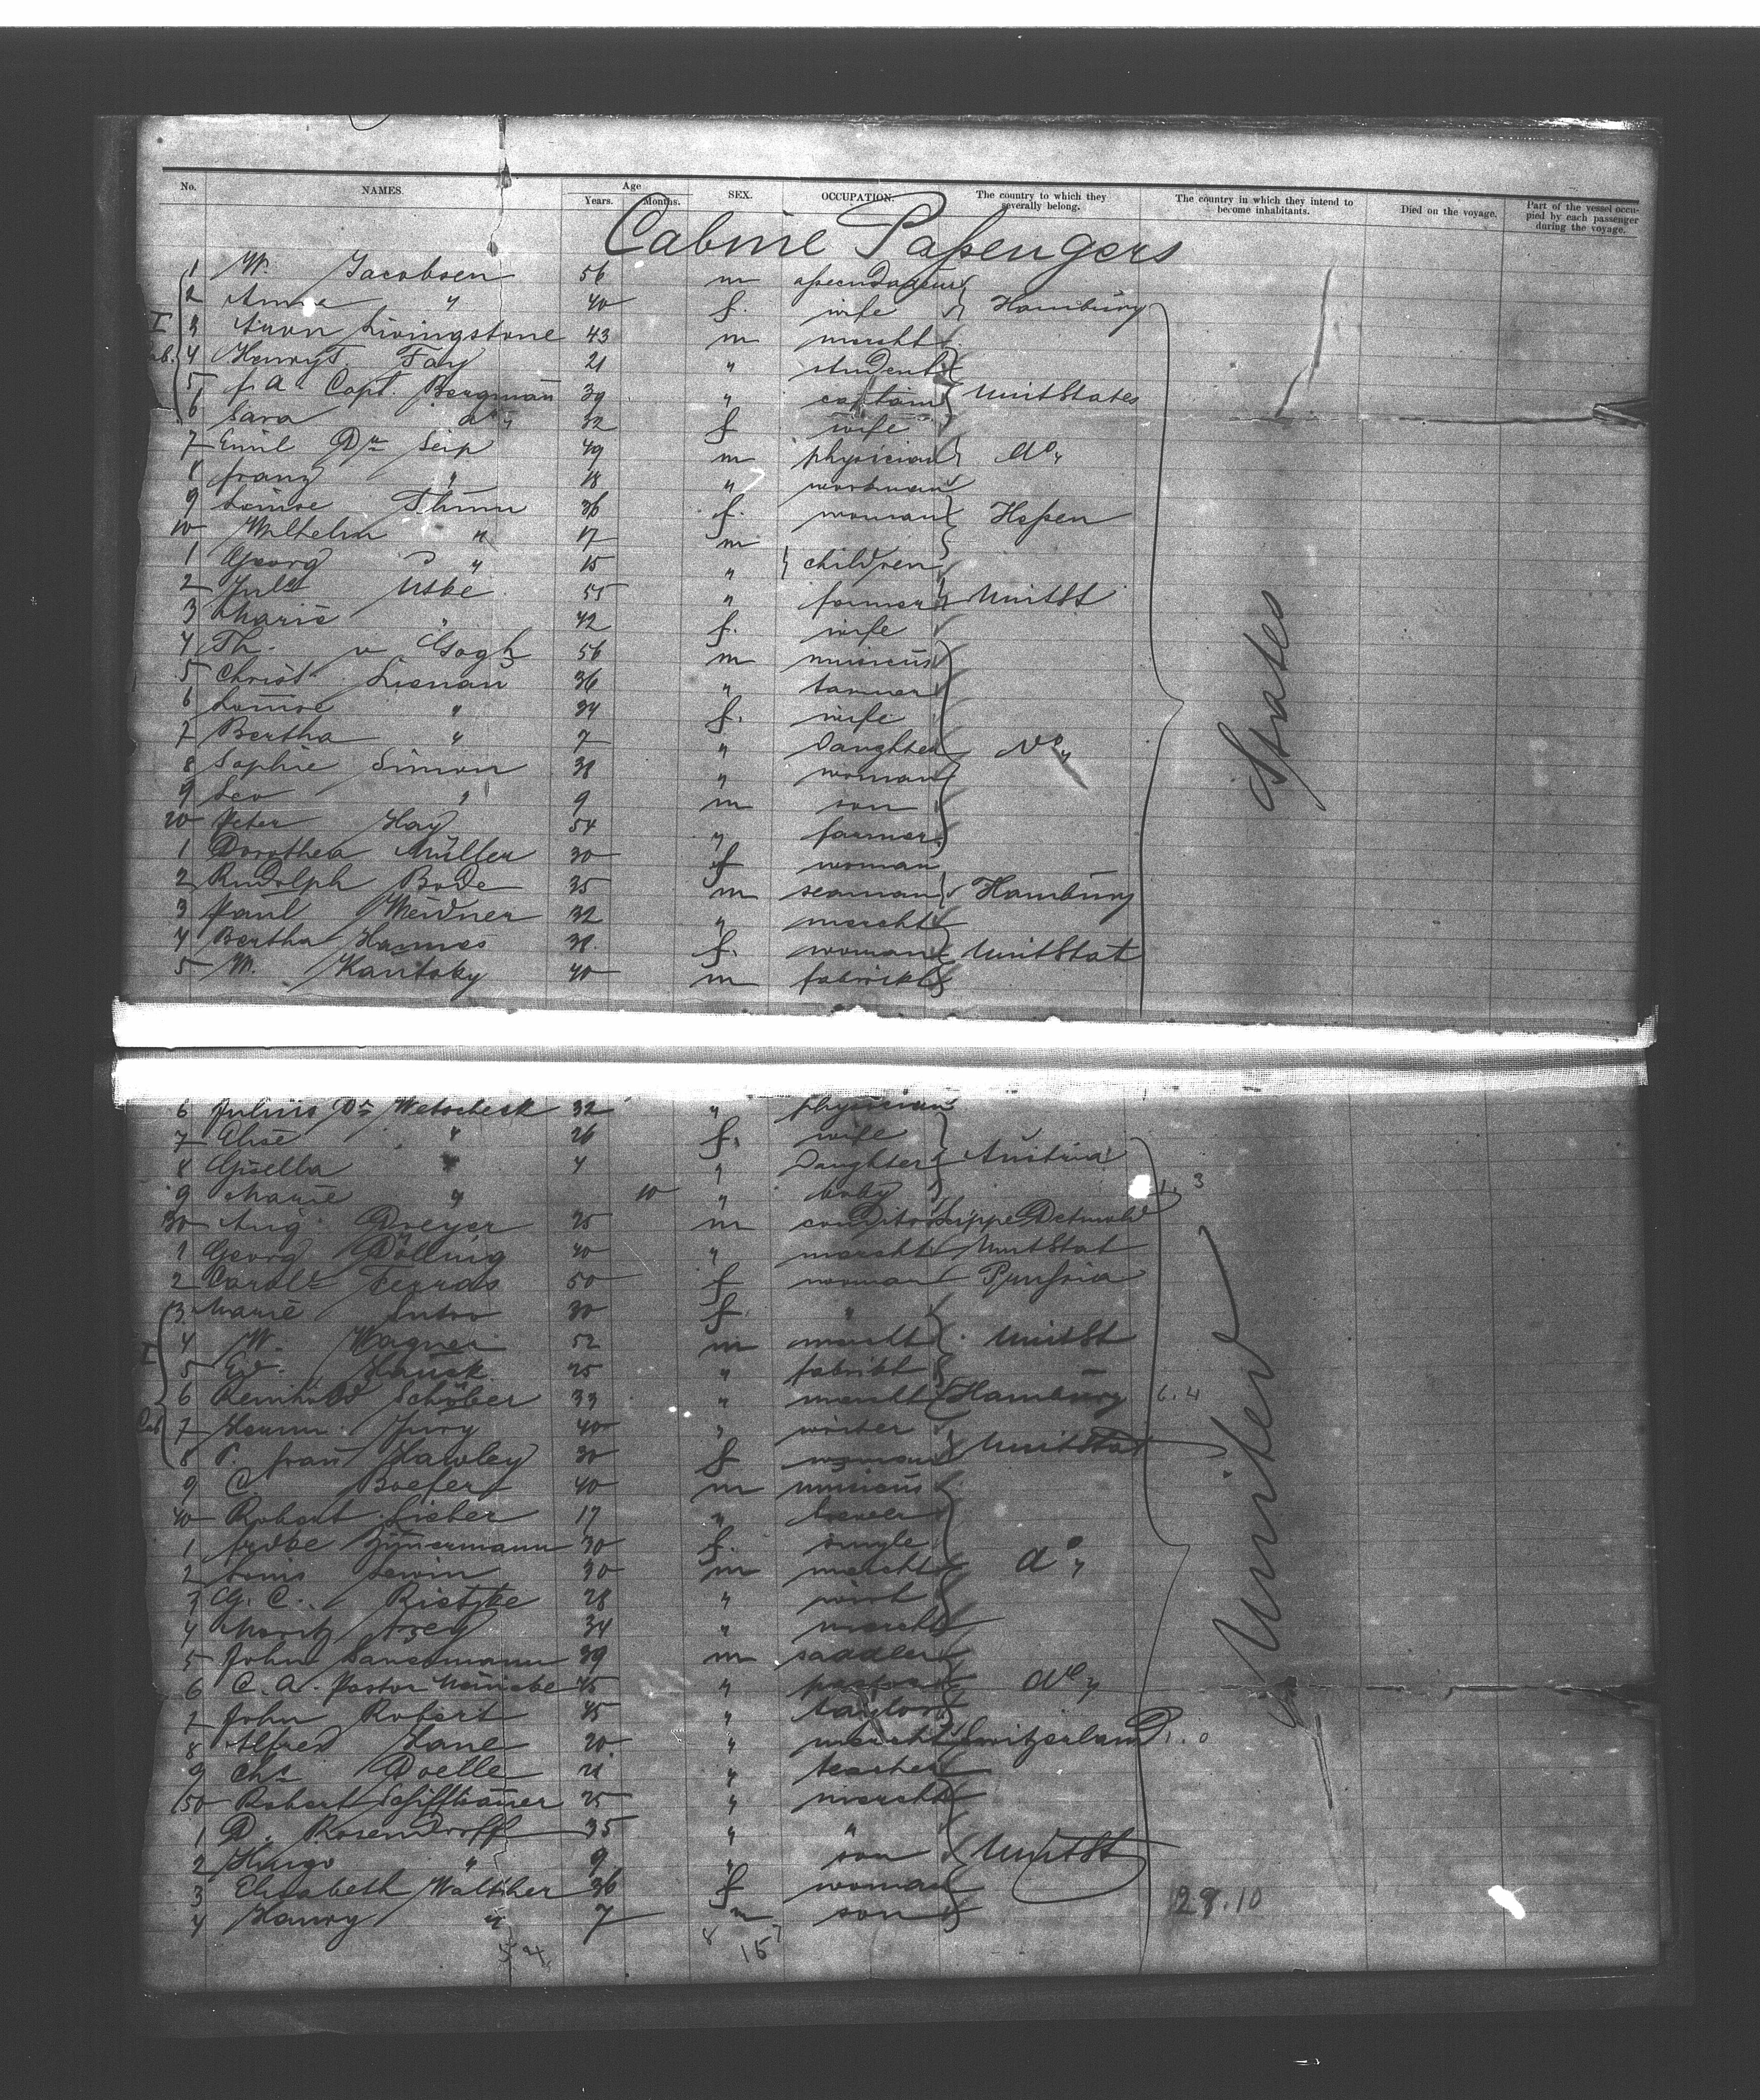 No. NAMES. Age Years. Months. SEX. OCCUPATION. The country to which they severally belong. The country in which they intend to become inhabitants. Died on the voyage. Part of the vessel occupied by each passenger during the voyage.
Cabine Passengers
1 W. Jacobsen 56 m
2 Anna " 40 f. wife Hamburg
3 Livingstone 43 m marcht
4 Henry Fay 21 " student
5 Capt. Bergmann 39 " captain UnitStates
6 Sara do 32 f wife
7 Emil Dr Seip 49 m physician do
8 Franz " 18 " workman
9 Louise Thum 36 f. woman Hessen
10 Wilhelm " 17 m
1 Georg " 15 " children
2 Juls Uske 55 " farmer UnitSt
3 Marie " 42 f. wife
4 Th. v Gogh 56 m musicus
5 Christ. Lienau 36 " tanner
6 Louise " 34 f. wife
7 Bertha " 7 " Daughter do
8 Sophie Simon 38 " woman
9 Leo " 9 m son
20 Peter Hay 54 " farmer
1 Dorothea Müller 30 f woman
2 Rudolph Bode 35 m seaman Hamburg
3 Paul Weidner 32 " marcht
4 Bertha Hannes 38. f. woman UnitStat
5 W. Kautsky 40 m fabrikt
6 Julius Dr 32 " physician
7 Elise " 26 f. wife
8 Gisella " 4 " Daughter Austria
9 Marie " 10 " baby 1. 3
30 Aug. Dreyer 25 m conditor Lippe Detmold
1 Georg Dölling 40 " marcht UnitStat
2 Carole Ferras 50 f woman Prussia
3 Marie 30 f. "
4 W. Wagner 52 m marcht UnitSt
5 Ed. Hauck 25 " fabrikt
6 Reinhold Schöber 33 " marcht Hamburg 6.4
7 Herm. Jury 40 " writer
8 P. frau Hawley 30 f woman UnitStat
9 C. Boefer 40 m musicus
40 Robert Lieber 17 "
1 Zimmermann 30 f. single
2 Louis Lewin 30 m marcht do
3 G. C. Rietzke 28 " wirt
4 Moritz Frey 34 " marcht
5 John 39 m saddler
6 C. A. Pastor 45 " pastor do
7 John Robert 45 " taylor
8 Alfred Lane 20 " marcht Switzerland 1.0
9 Chs Doelle 21 " teacher
50 Robert 25 " marcht
1 D. Rosendorff 35 " "
2 Hugo " 9 " son UnitSt
3 Elisabeth Walther 36 f woman
4 Hanry " 7 m son
29.10
54.
8 15
United States